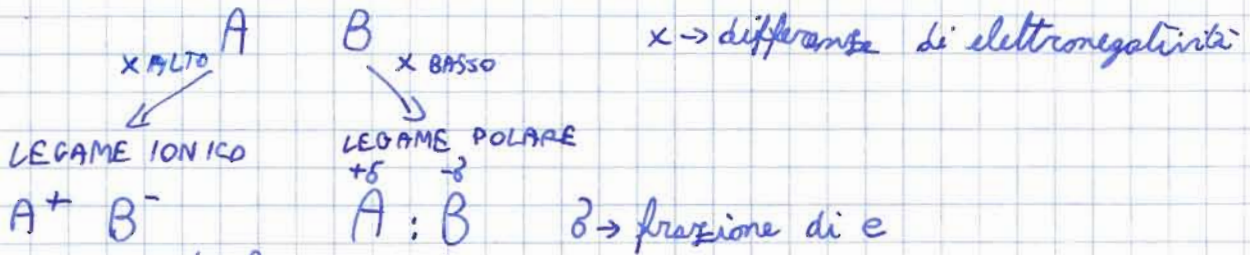 A B x → differenza di elettronegatività
x ALTO x BASSO
LEGAME IONICO LEGAME POLARE
+δ -δ
A⁺ B⁻ A : B δ → frazione di e